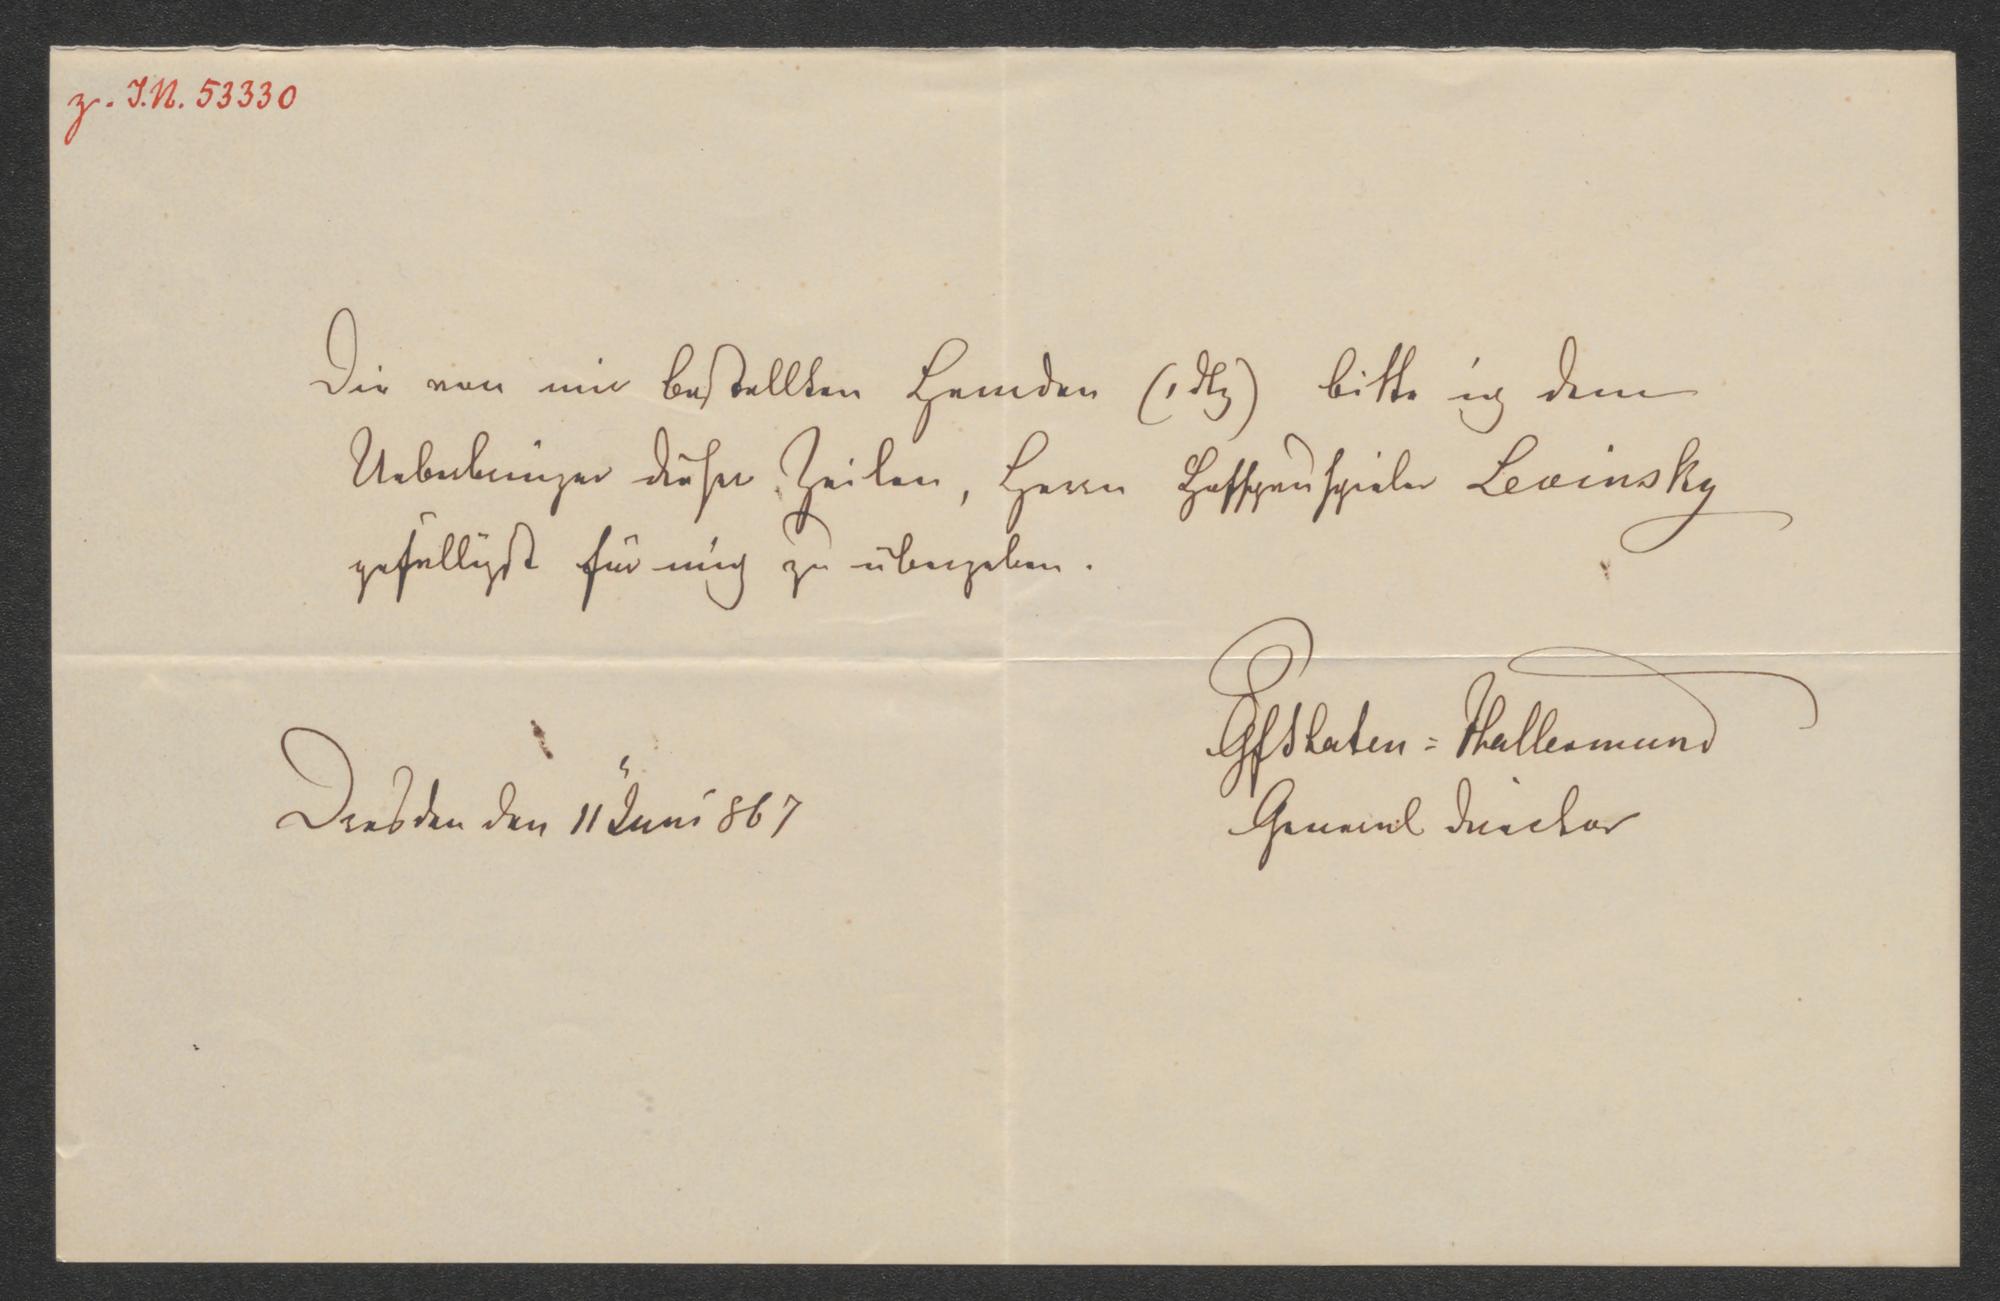 z. I.N. 53330
Die von mir bestellten Hemden (1 dtz) bitte ich dem
Ueberbringer dieser Zeilen, Herrn Hofschauspieler Lewinsky
gefälligst für mich zu übergeben.
GfPlaten=Hallermund
Dresden den 11 Juni 867
General director